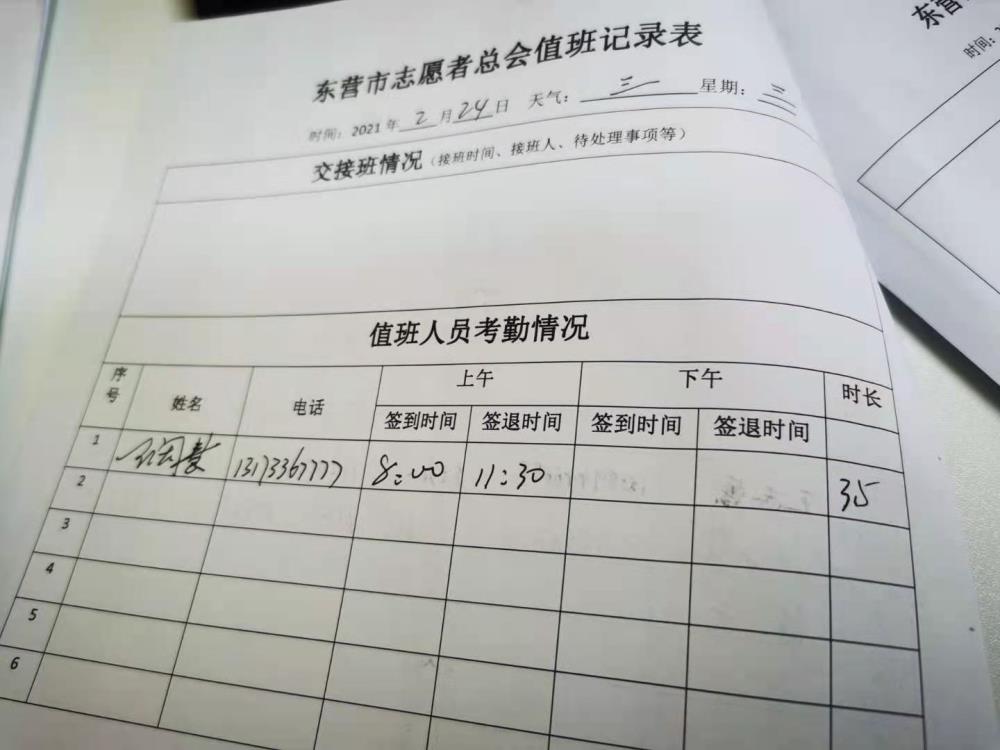 东营市志愿者总会值班记录表
时间：2021年2月24日 天气： 星期：三
交接班情况（接班时间、接班人、待处理事项等）
值班人员考勤情况
序号 姓名 电话 上午 下午 时长
签到时间 签退时间 签到时间 签退时间
1 13173367777 8:00 11:30 35
2
3
4
5
6
东营
时间：